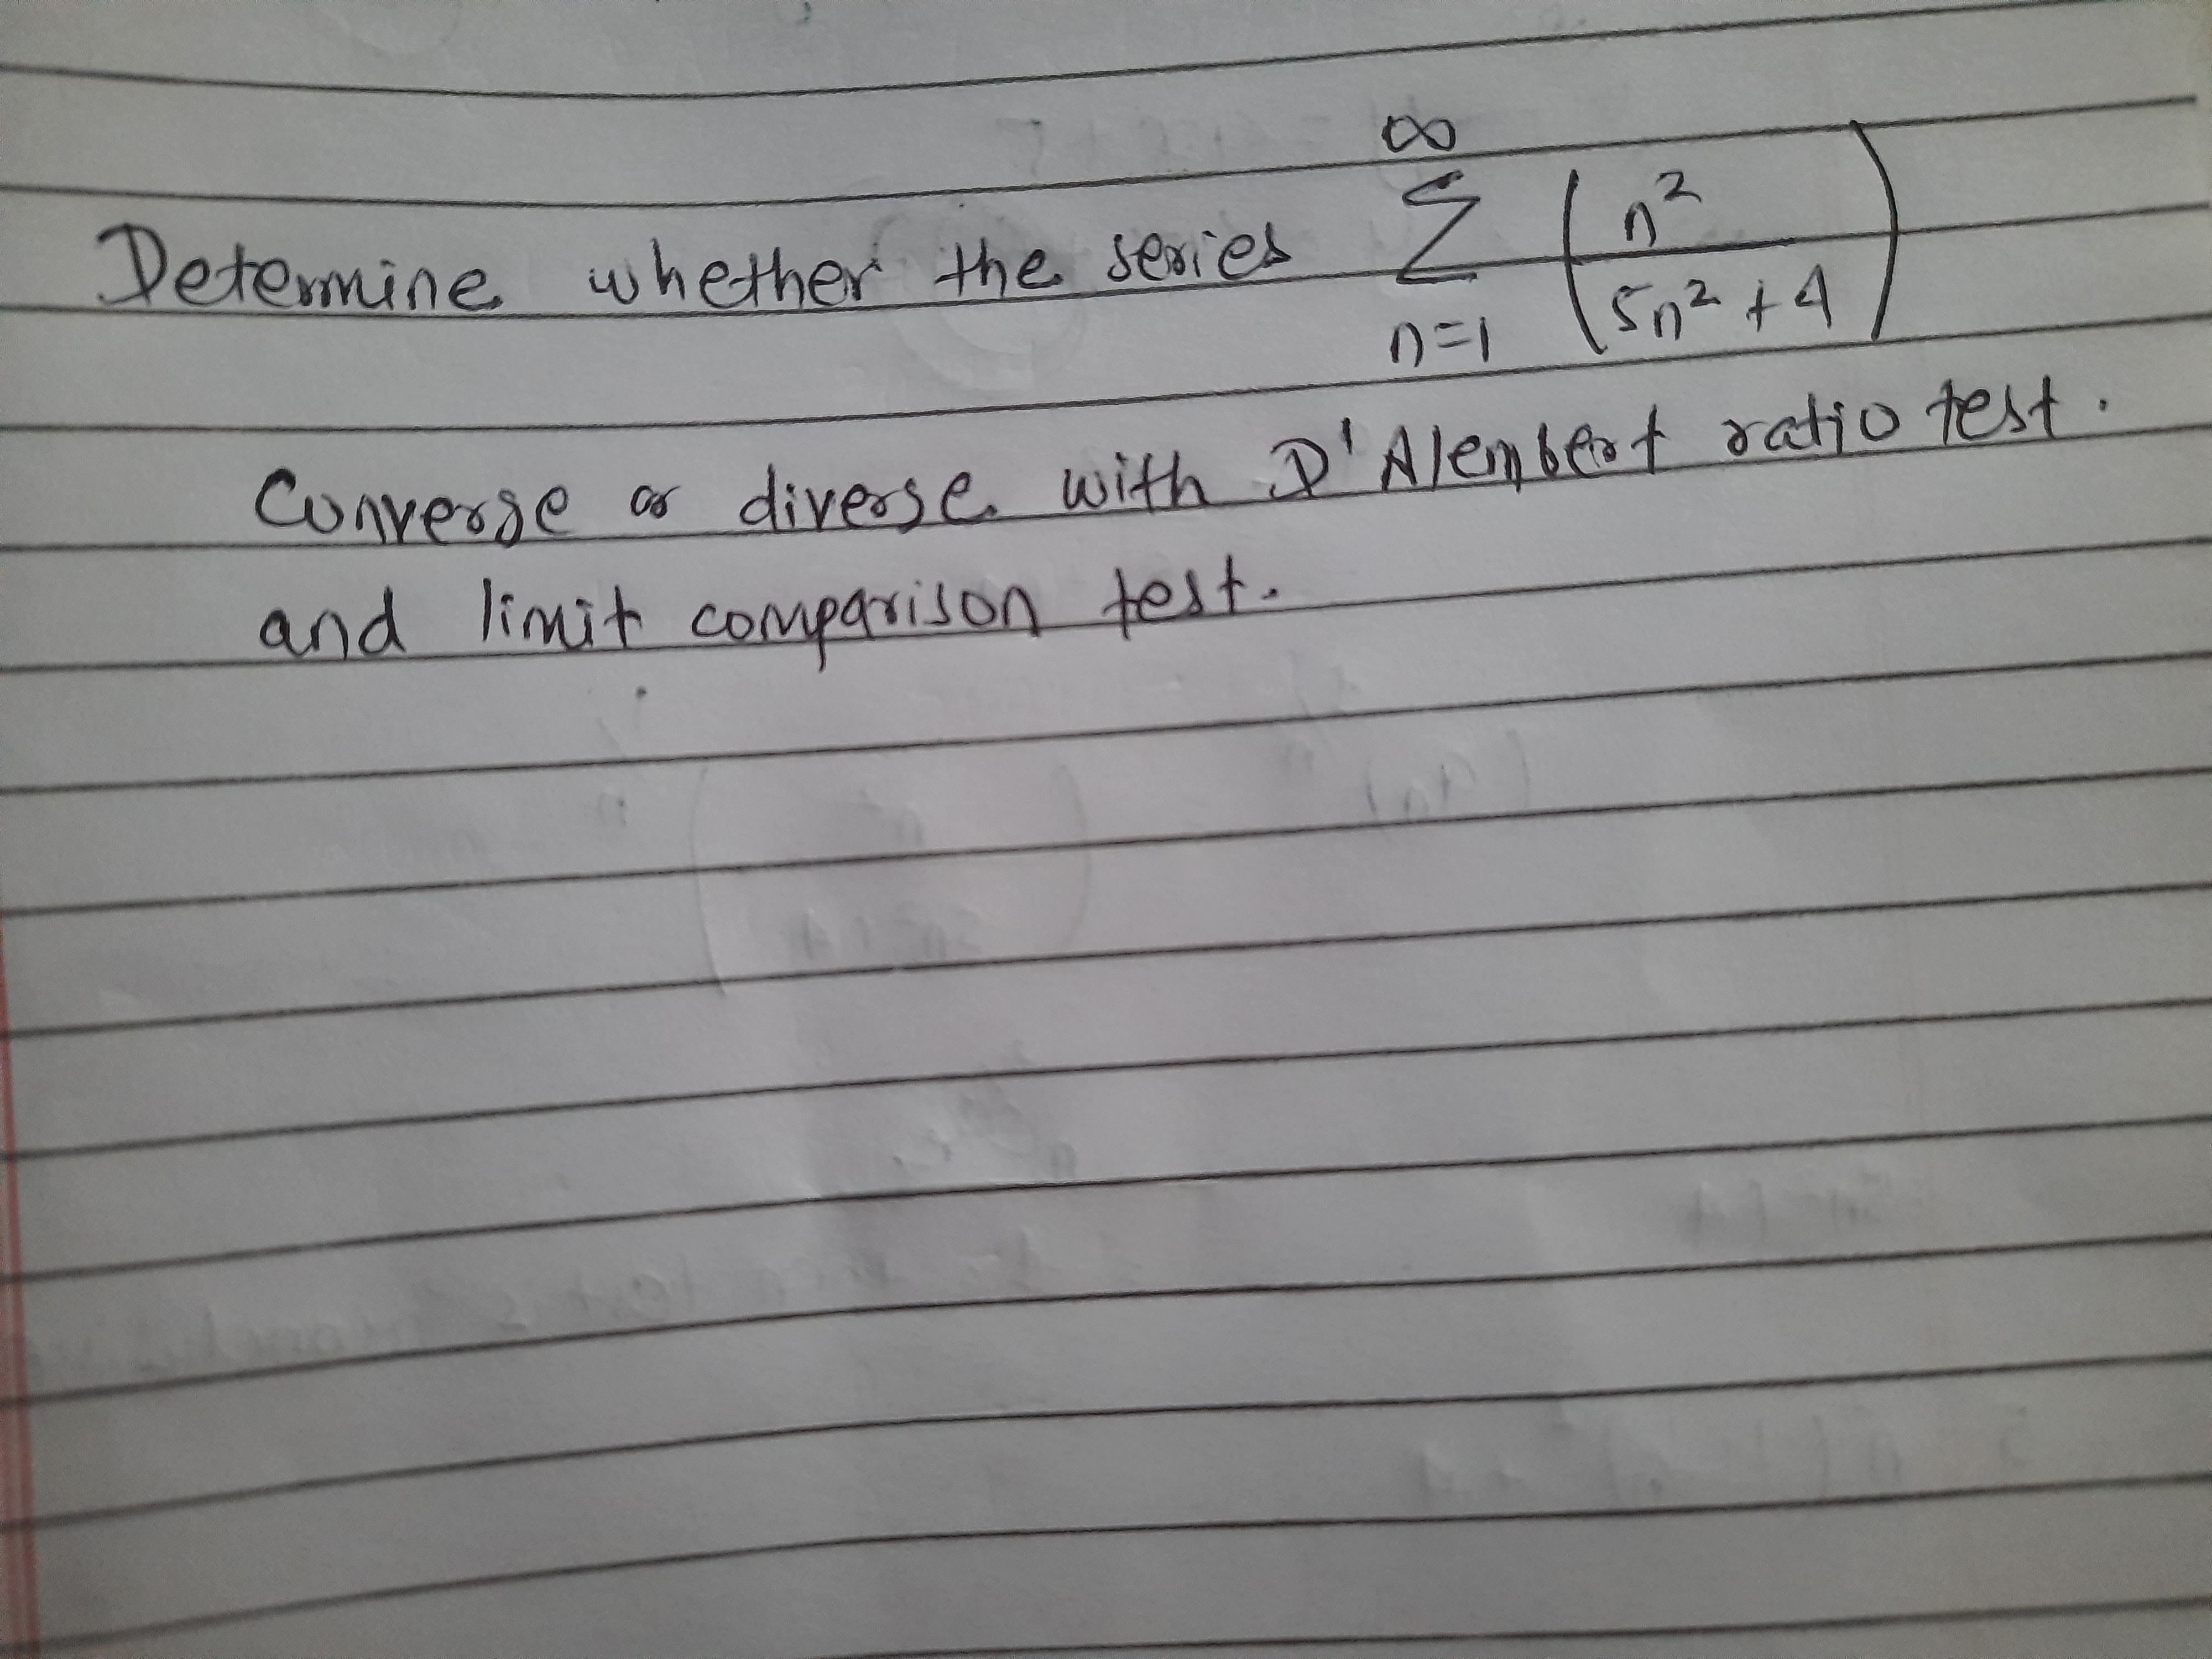 Determine whether the series ∞ Σ n=1 (n²/(5n²+4))
Converge or diverse with D'Alembert ratio test.
and limit comparison test.